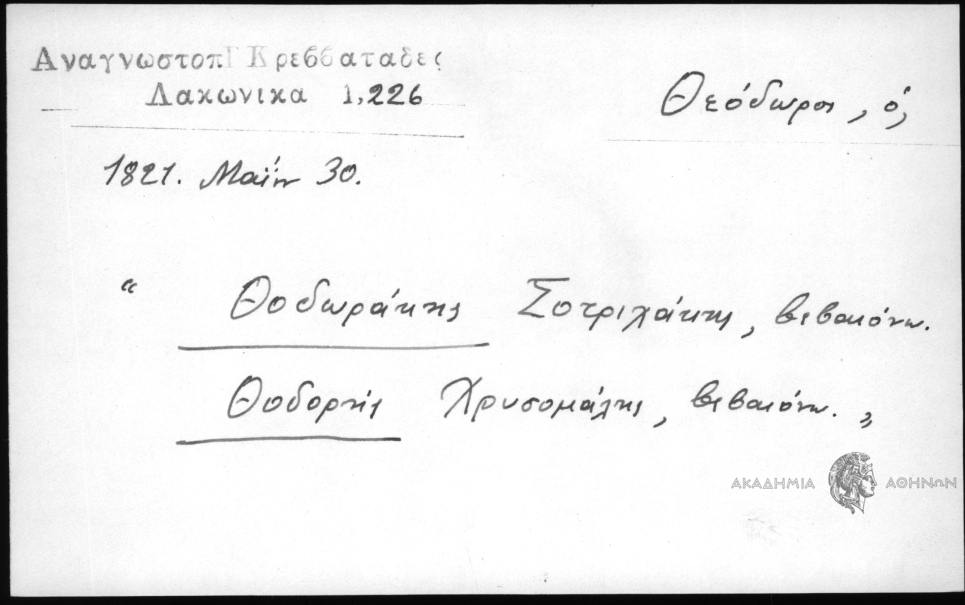 Αναγνωστοπ Κρεββαταδες
Λακωνικα 1,226
Θεόδωρος, ὁ,
1821. Μαΐου 30.
“ Θοδωράκης Σοτριχάκης, βεβαιόνω.
Θοδορής Χρυσομάλης, βεβαιόνω. „
ΑΚΑΔΗΜΙΑ ΑΘΗΝΩΝ